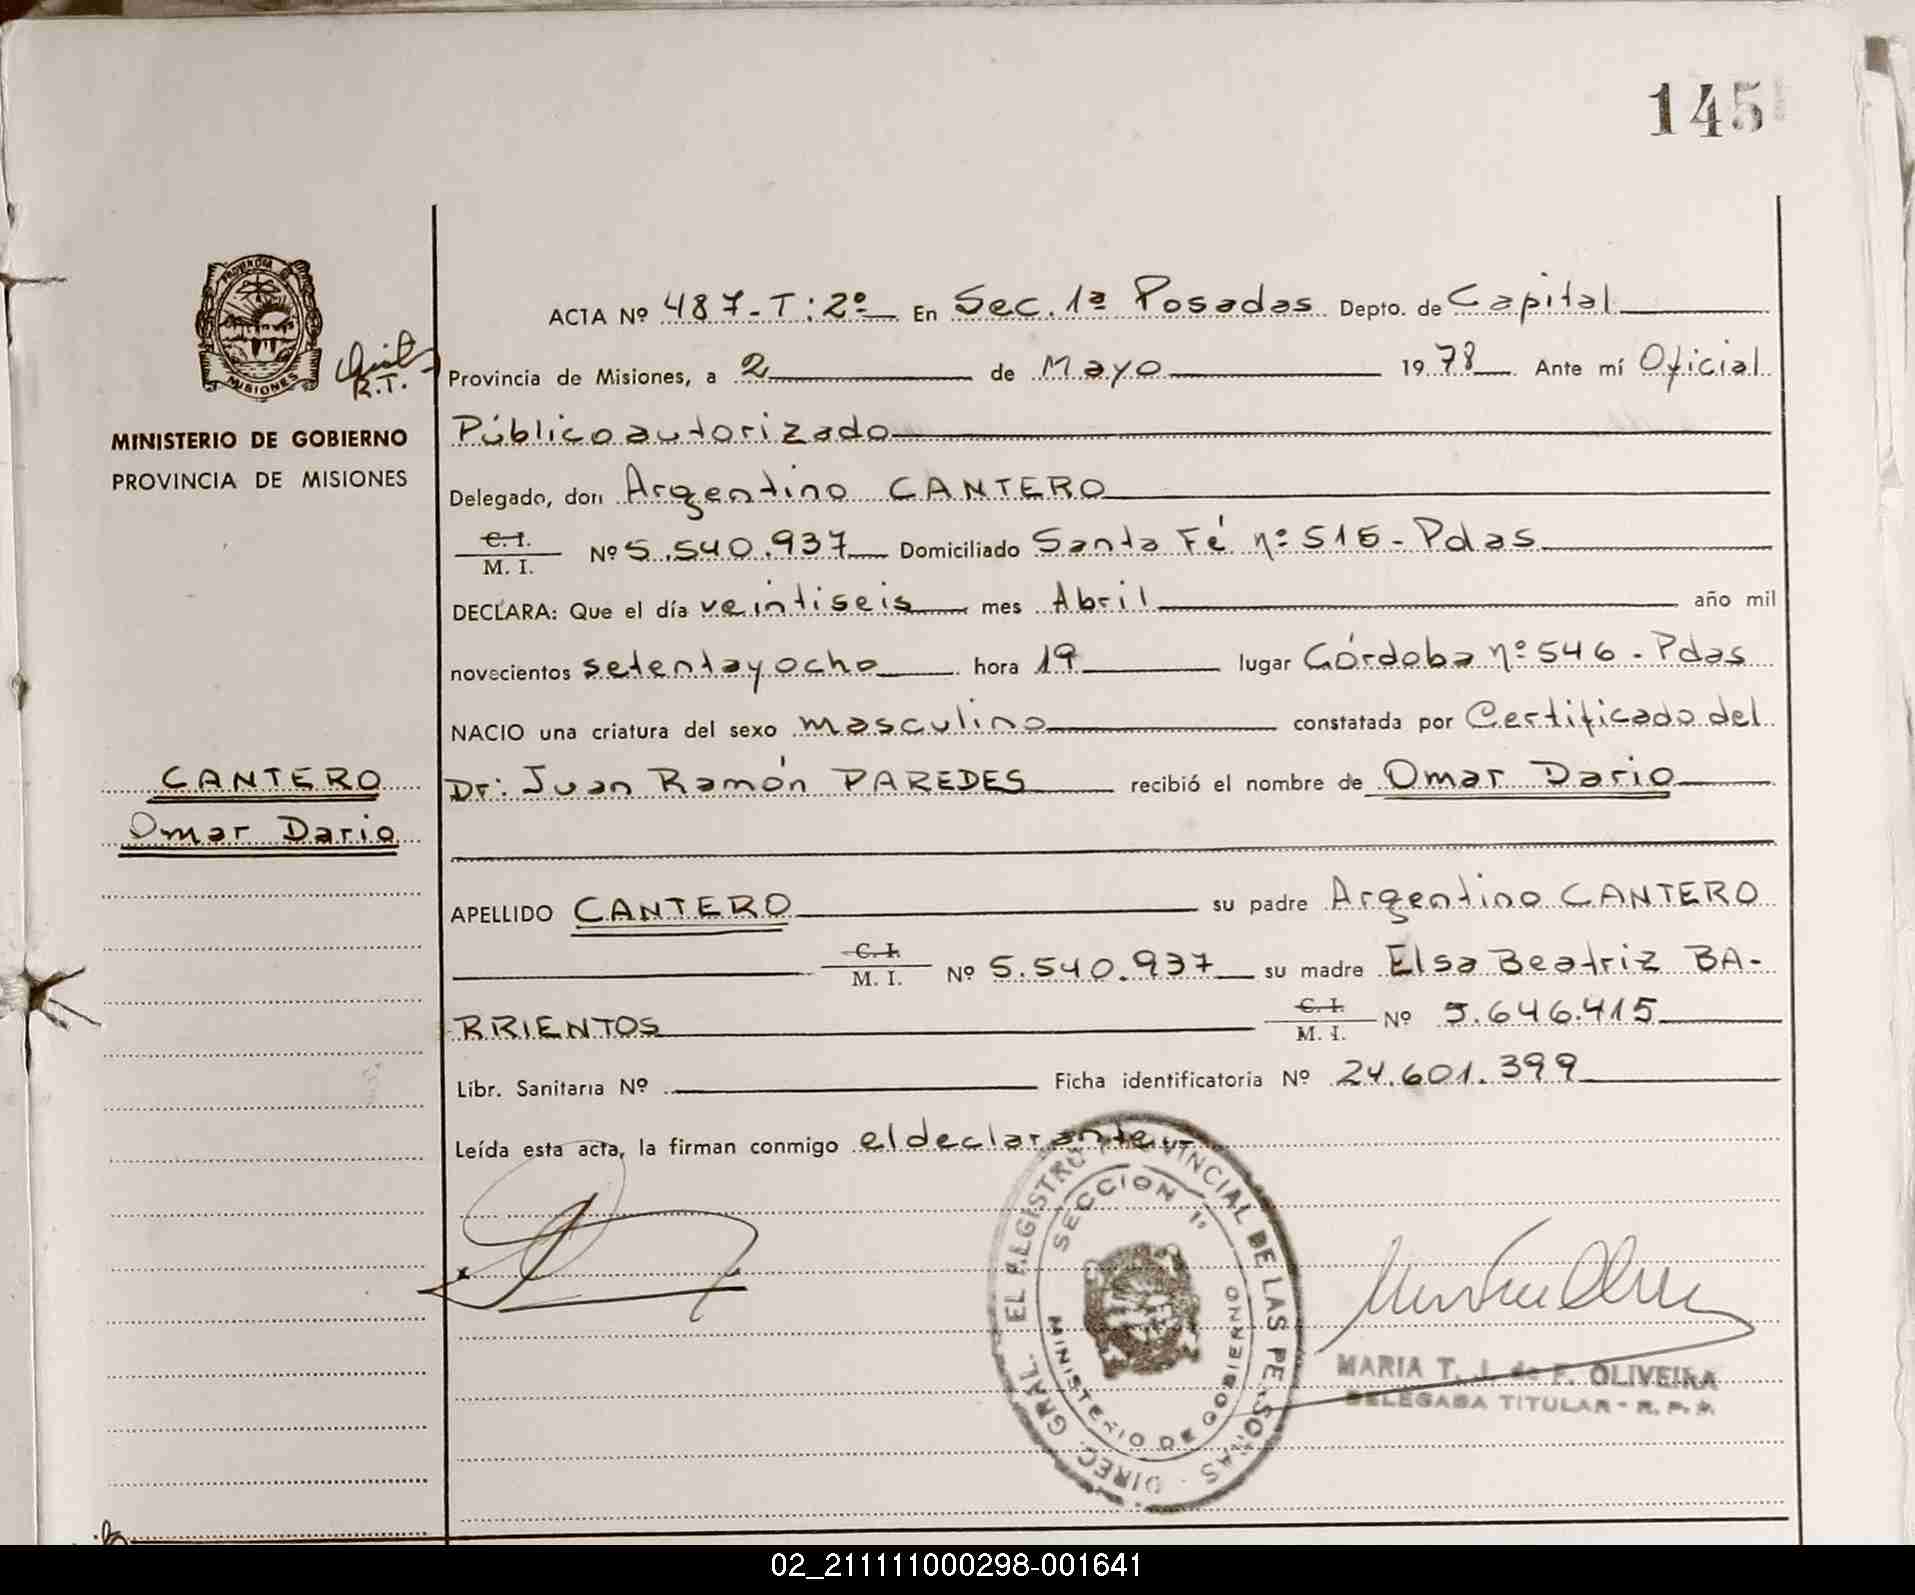 145
ACTA Nº 487-T:2º En Sec. 1ª Posadas Depto. de Capital
R.T.
Provincia de Misiones, a 2 de Mayo 1978 Ante mí Oficial
Público autorizado
MINISTERIO DE GOBIERNO
PROVINCIA DE MISIONES
PROVINCIA DE
MISIONES
Delegado, don Argentino CANTERO
C. I.
M. I. Nº 5.540.937 Domiciliado Santa Fé nº 515 - Pdas
DECLARA: Que el día veintiseis mes Abril año mil
novecientos setentayocho hora 19 lugar Córdoba nº 546 - Pdas
NACIO una criatura del sexo masculino constatada por Certificado del
Dr: Juan Ramón PAREDES recibió el nombre de Omar Dario
CANTERO
Omar Dario
APELLIDO CANTERO su padre Argentino CANTERO
C. I.
M. I. Nº 5.540.937 su madre Elsa Beatriz BA-
RRIENTOS C. I.
M. I. Nº 5.646.415
Libr. Sanitaria Nº Ficha identificatoria Nº 24.601.399
Leída esta acta, la firman conmigo el declarante.-
DIREC. GRAL. EL REGISTRO PROVINCIAL DE LAS PERSONAS
SECCION 1º
MINISTERIO DE GOBIERNO
MARIA T. J. de F. OLIVEIRA
DELEGADA TITULAR - R. P. P.
02_211111000298-001641